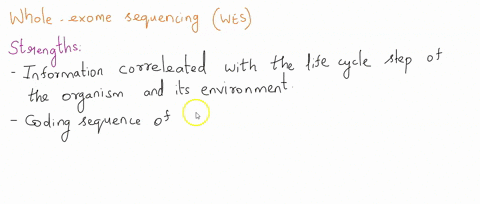 Whole-exome sequencing (WES)
Strengths:
- Information correleated with the life cycle step of
the organism and its environment.
- Coding sequence of